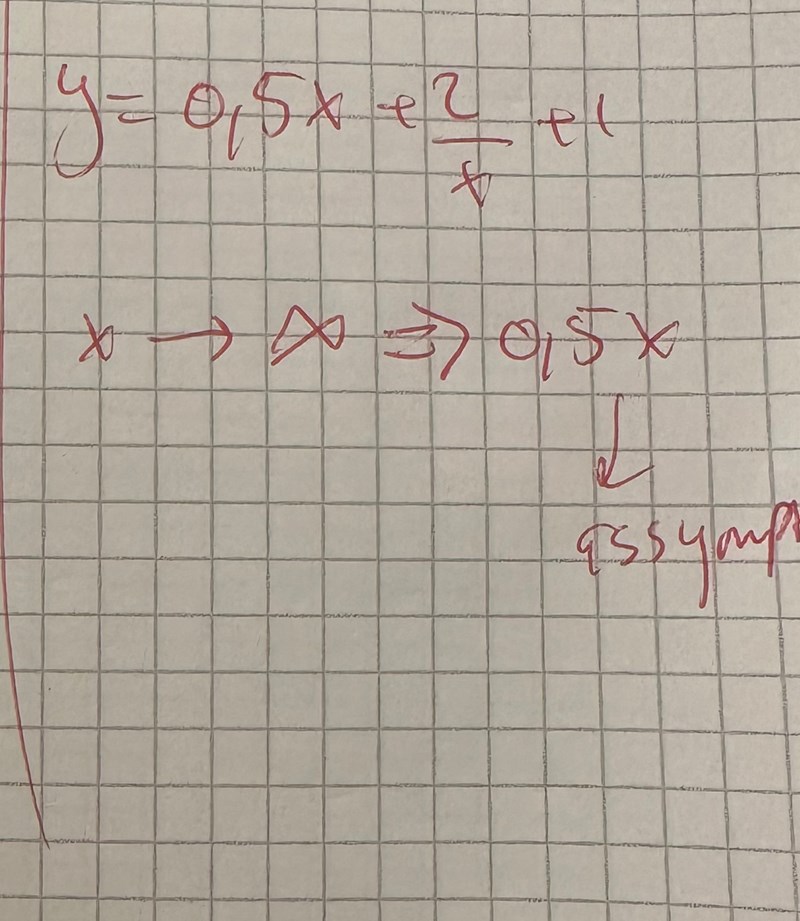 y = 0,5x + 2/x + 1
x → ∞ ⇒ 0,5x
↓
assymp